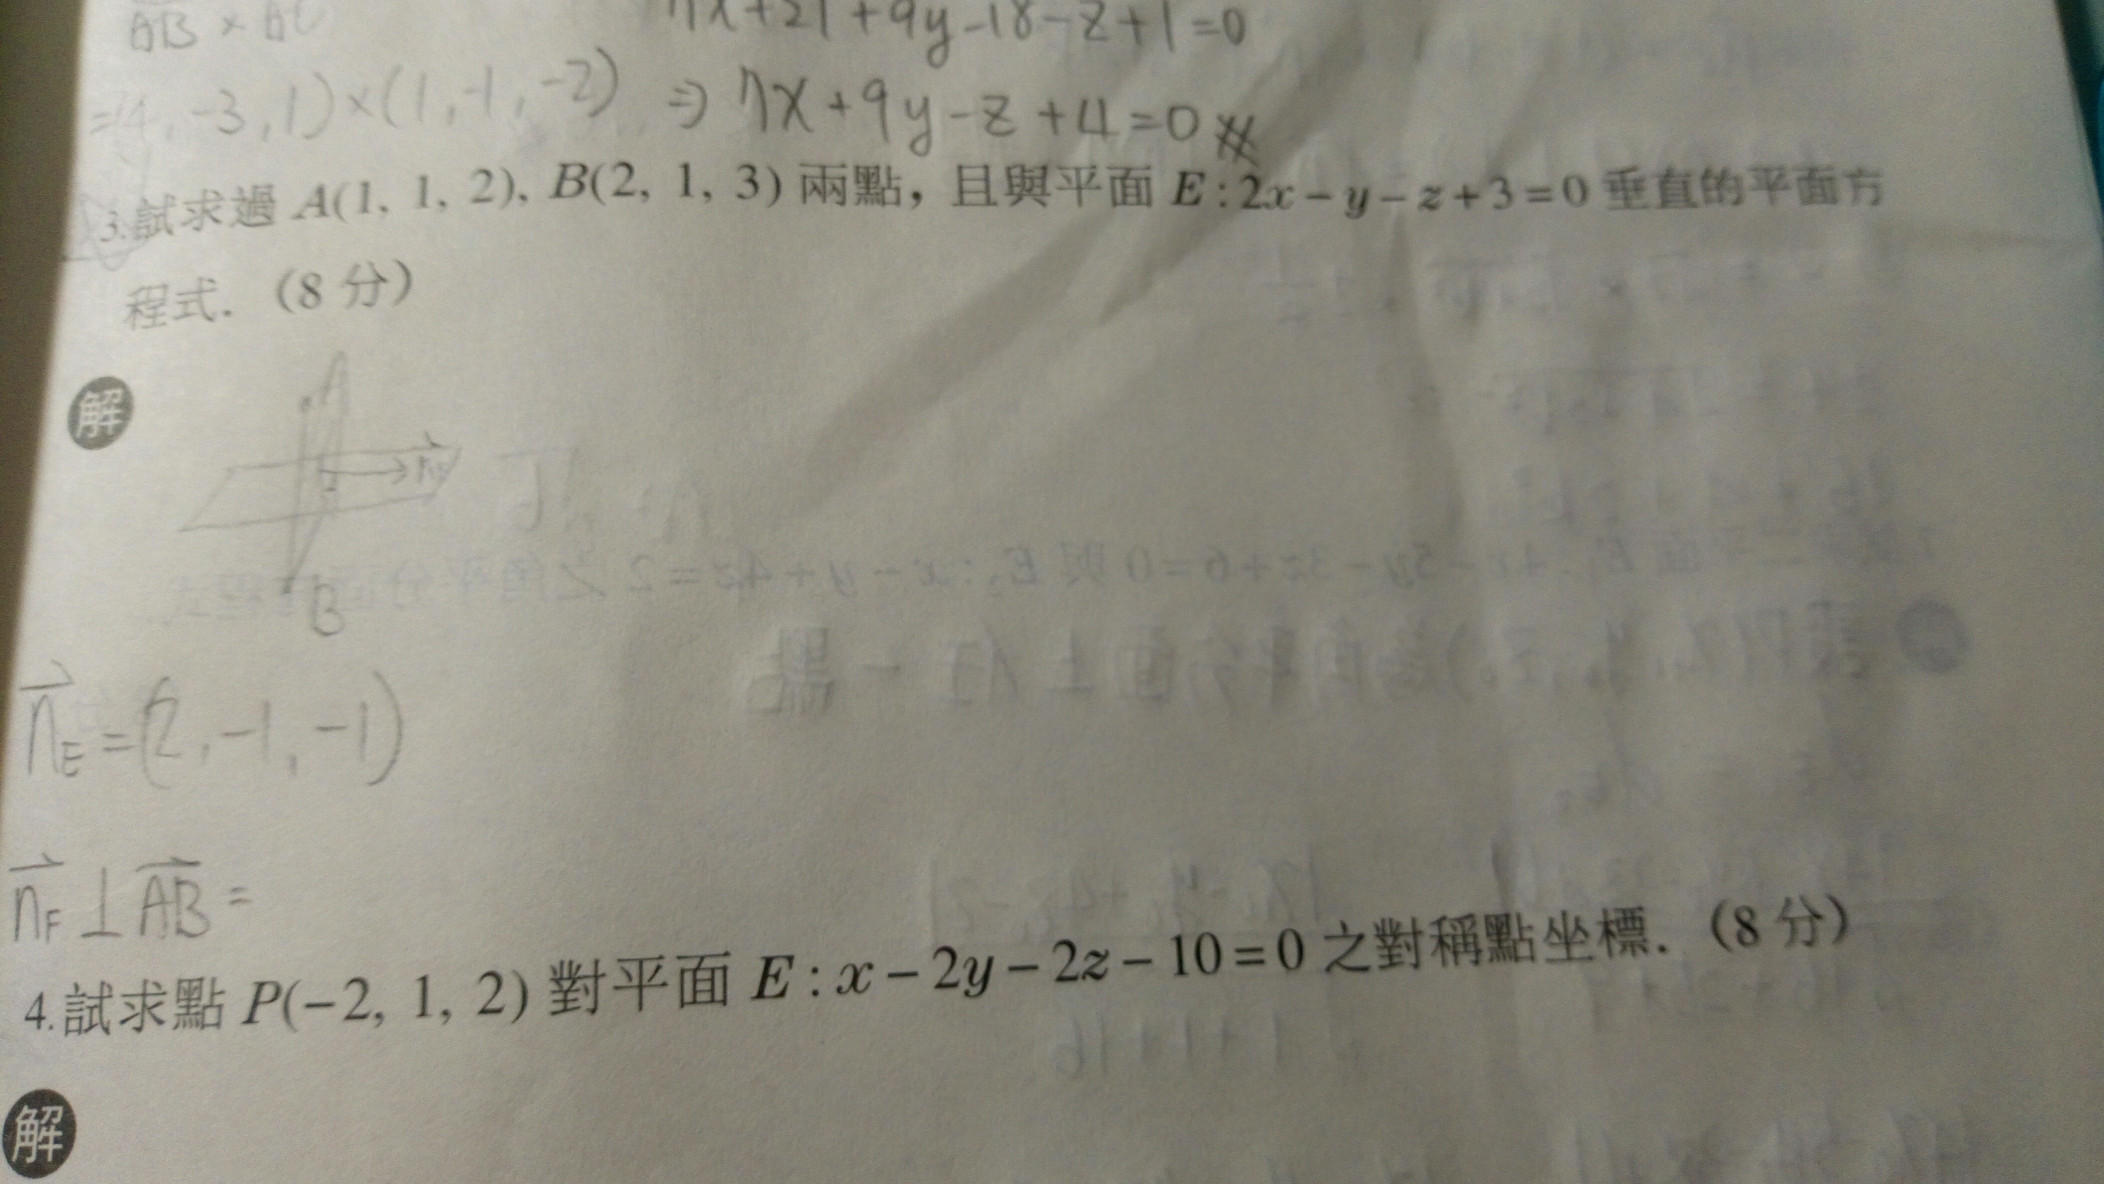 AB × AC
7x+21+9y-18-z+1=0
=(4,-3,1)×(1,-1,-2) ⇒ 7x+9y-z+4=0 #
3.試求過 A(1, 1, 2), B(2, 1, 3) 兩點，且與平面 E:2x-y-z+3=0 垂直的平面方
程式. (8 分)
解
B
n_E=(2,-1,-1)
n_F⊥AB=
4.試求點 P(-2, 1, 2) 對平面 E:x-2y-2z-10=0 之對稱點坐標. (8 分)
解